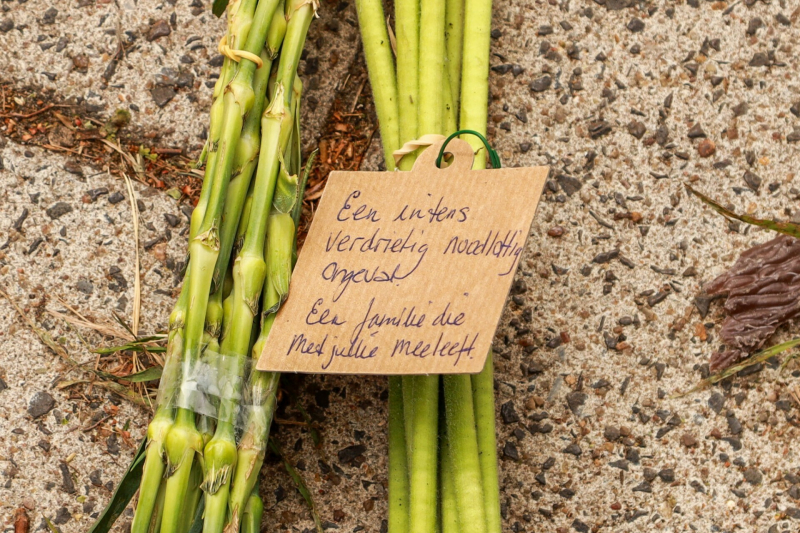 Een intens
verdrietig noodlottig
ongeval.
Een familie die
Met jullie meeleeft.